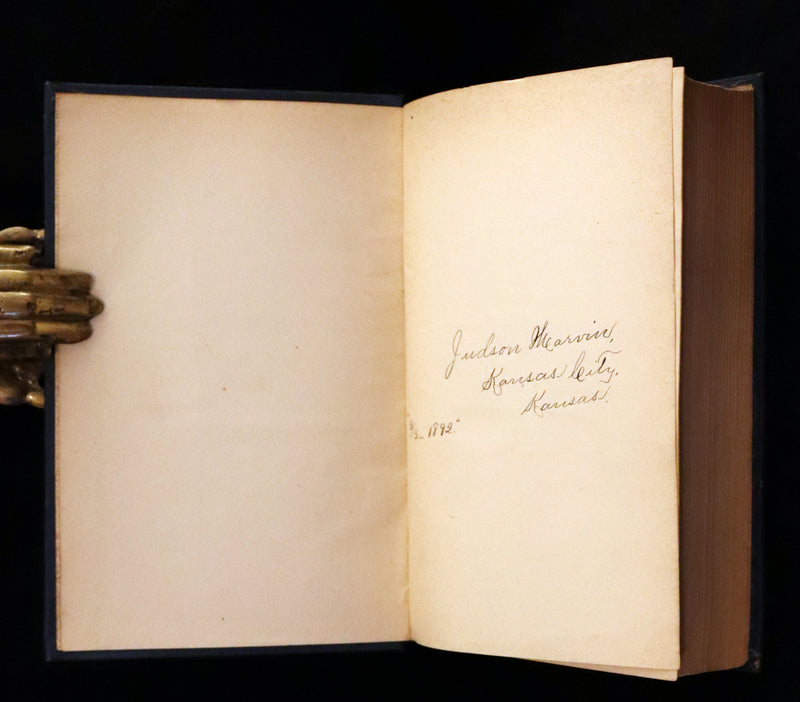 Judson Marvin,
Kansas City,
Kansas.
1892."